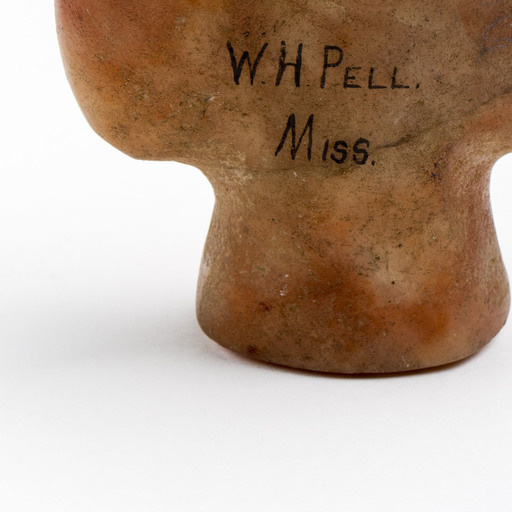 W.H.PELL.
MISS.